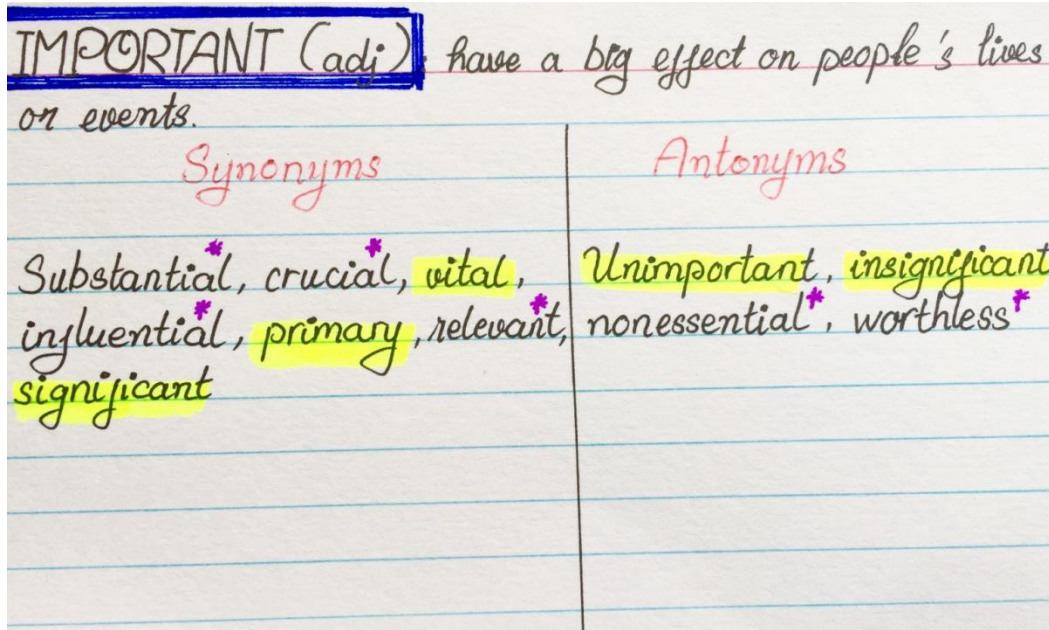 IMPORTANT (adj): have a big effect on people's lives
or events.
Synonyms
Substantial*, crucial*, vital,
influential*, primary, relevant*,
significant
Antonyms
Unimportant, insignificant
nonessential*, worthless*